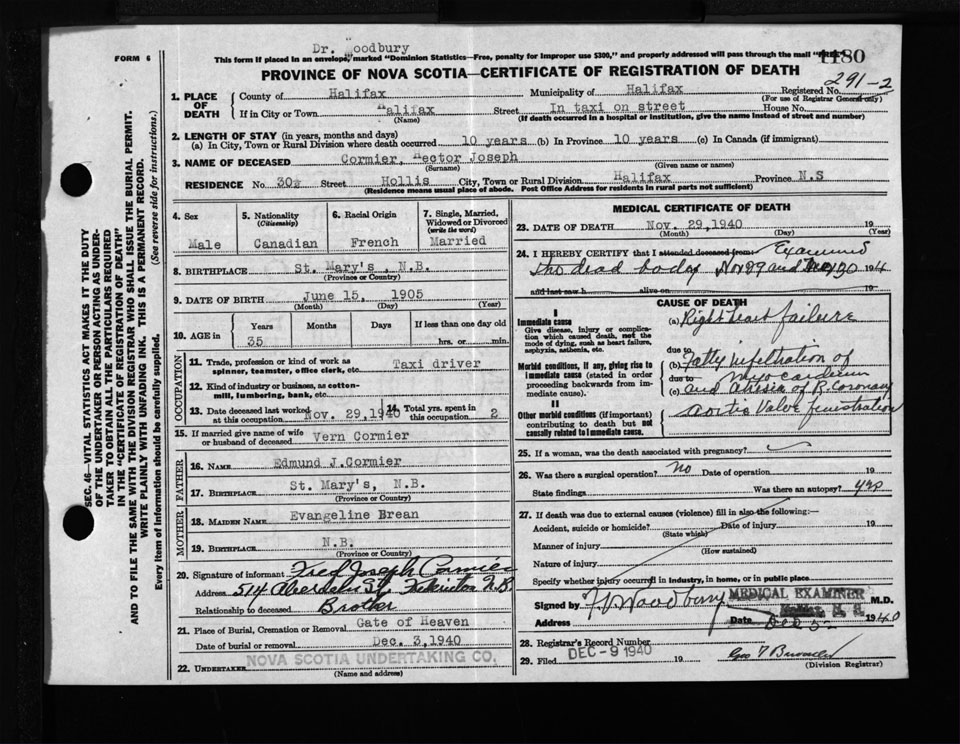 Dr. Woodbury
FORM 6
This form if placed in an envelope, marked "Dominion Statistics—Free, penalty for improper use $300," and properly addressed will pass through the mail "FREE"
1180
PROVINCE OF NOVA SCOTIA—CERTIFICATE OF REGISTRATION OF DEATH
291-2
1. PLACE OF DEATH
County of Halifax Municipality of Halifax Registered No.
(For use of Registrar General only)
If in City or Town Halifax Street In taxi on street House No.
(Name) (If death occurred in a hospital or institution, give the name instead of street and number)
2. LENGTH OF STAY (in years, months and days)
(a) In City, Town or Rural Division where death occurred 10 years (b) In Province 10 years (c) In Canada (if immigrant)
3. NAME OF DECEASED Cormier, Hector Joseph
(Surname) (Given name or names)
RESIDENCE No 30½ Street Hollis City, Town or Rural Division Halifax Province N.S
(Residence means usual place of abode. Post Office Address for residents in rural parts not sufficient)
4. Sex
Male
5. Nationality
(Citizenship)
Canadian
6. Racial Origin
French
7. Single, Married, Widowed or Divorced
(write the word)
Married
8. BIRTHPLACE St. Mary's, N.B.
(Province or Country)
9. DATE OF BIRTH June 15, 1905
(Month) (Day) (Year)
10. AGE in
Years Months Days If less than one day old
35 hrs. or min.
OCCUPATION
11. Trade, profession or kind of work as spinner, teamster, office clerk, etc. Taxi driver
12. Kind of industry or business, as cotton-mill, lumbering, bank, etc.
13. Date deceased last worked at this occupation Nov. 29, 1940
14. Total yrs. spent in this occupation 2
15. If married give name of wife or husband of deceased Vern Cormier
FATHER
16. NAME Edmund J. Cormier
17. BIRTHPLACE St. Mary's, N.B.
(Province or Country)
MOTHER
18. MAIDEN NAME Evangeline Brean
19. BIRTHPLACE N.B.
(Province or Country)
20. Signature of informant Fred Joseph Cormier
Address 514 Aberdeen St. Fredericton N.B.
Relationship to deceased Brother
21. Place of Burial, Cremation or Removal Gate of Heaven
Date of burial or removal Dec. 3, 1940
22. UNDERTAKER NOVA SCOTIA UNDERTAKING CO.
(Name and address)
MEDICAL CERTIFICATE OF DEATH
23. DATE OF DEATH Nov. 29, 1940 19
(Month) (Day) (Year)
24. I HEREBY CERTIFY that I attended deceased from: Examined
The dead body Nov 29 and 30 194
and last saw h alive on 19
CAUSE OF DEATH
I
Immediate cause
Give disease, injury or complication which caused death, not the mode of dying, such as heart failure, asphyxia, asthenia, etc.
(a) Right heart failure
due to
Morbid conditions, if any, giving rise to immediate cause (stated in order proceeding backwards from immediate cause).
(b) Fatty infiltration of
due to myocardium
(c) and Atresia of R. Coronary
II
Other morbid conditions (if important) contributing to death but not causally related to immediate cause.
Aortic Valve fenistration
25. If a woman, was the death associated with pregnancy?
26. Was there a surgical operation? No Date of operation 19
State findings Was there an autopsy? yes
27. If death was due to external causes (violence) fill in also the following:—
Accident, suicide or homicide? Date of injury 19
(State which)
Manner of injury
(How sustained)
Nature of injury
Specify whether injury occurred in industry, in home, or in public place
Signed by Woodbury M.D.
MEDICAL EXAMINER
Address Date Dec 5 1940
28. Registrar's Record Number
29. Filed DEC -9 1940 19
(Division Registrar)
SEC. 46—VITAL STATISTICS ACT MAKES IT THE DUTY OF THE UNDERTAKER OR PERSON ACTING AS UNDERTAKER TO OBTAIN ALL THE PARTICULARS REQUIRED IN THE "CERTIFICATE OF REGISTRATION OF DEATH"
AND TO FILE THE SAME WITH THE DIVISION REGISTRAR WHO SHALL ISSUE THE BURIAL PERMIT.
WRITE PLAINLY WITH UNFADING INK. THIS IS A PERMANENT RECORD.
Every item of information should be carefully supplied. (See reverse side for instructions.)